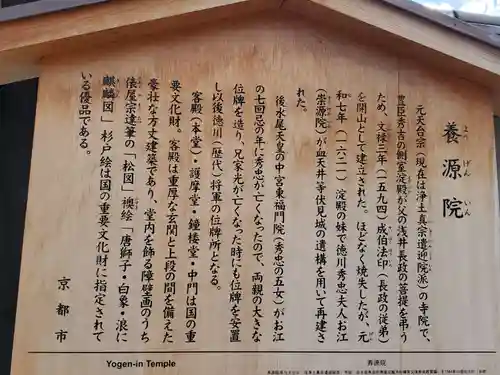 養源院
ようげんいん
元天台宗(現在は浄土真宗遣迎院派)の寺院で、
豊臣秀吉の側室淀殿が父の浅井長政の菩提を弔う
ため、文禄三年(一五九四)成伯法印(長政の従弟)
を開山として建立された。ほどなく焼失したが、元
和七年(一六二一)淀殿の妹で徳川秀忠夫人お江
(崇源院)が血天井等伏見城の遺構を用いて再建さ
れた。
後水尾天皇の中宮東福門院(秀忠の五女)がお江
の七回忌の年に秀忠が亡くなったので、両親の大きな
位牌を造り、兄家光が亡くなった時にも位牌を安置
し以後徳川(歴代)将軍の位牌所となる。
客殿(本堂)・護摩堂・鐘楼堂・中門は国の重
要文化財。客殿は重厚な玄関と上段の間を備えた
豪壮な方丈建築であり、堂内を飾る障壁画のうち
俵屋宗達筆の「松図」襖絵「唐獅子・白象・浪に
麒麟図」杉戸絵は国の重要文化財に指定されて
いる優品である。
京都市
Yogen-in Temple
养源院